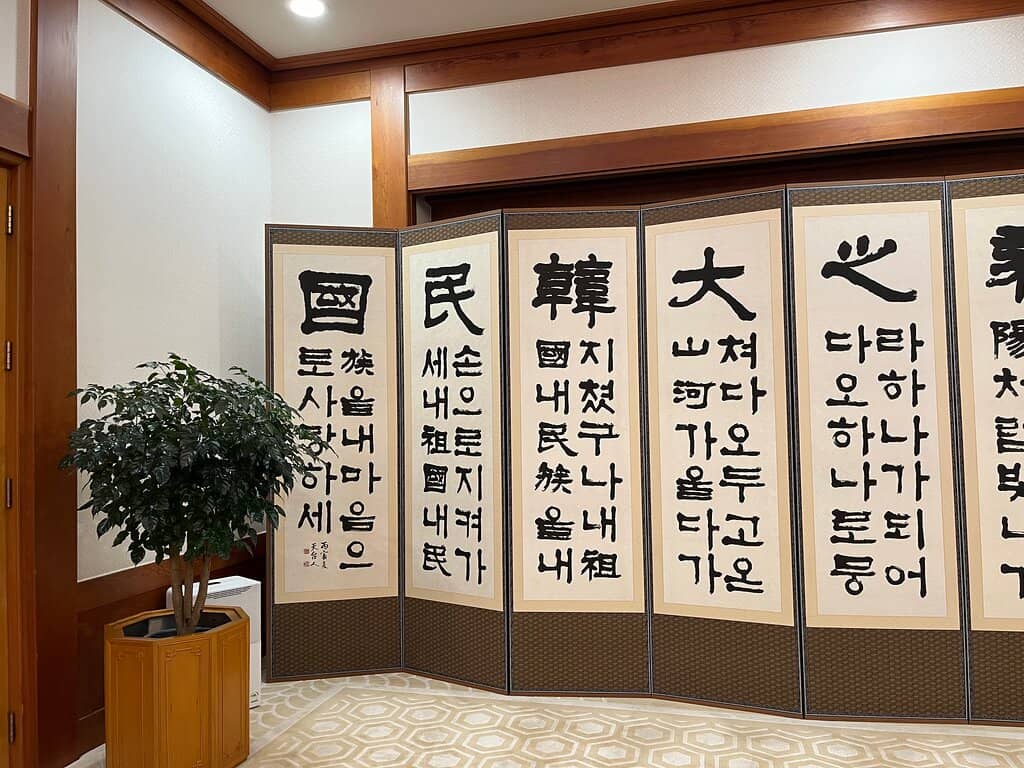 陽처럼빛나
心
라하나가되어
다오하나로뭉
大
쳐다오두고온
山河가울다가
韓
지쳤구나내祖
國내民族을내
民
손으로지켜가
세내祖國내民
國
族을내마음으
로사랑하세